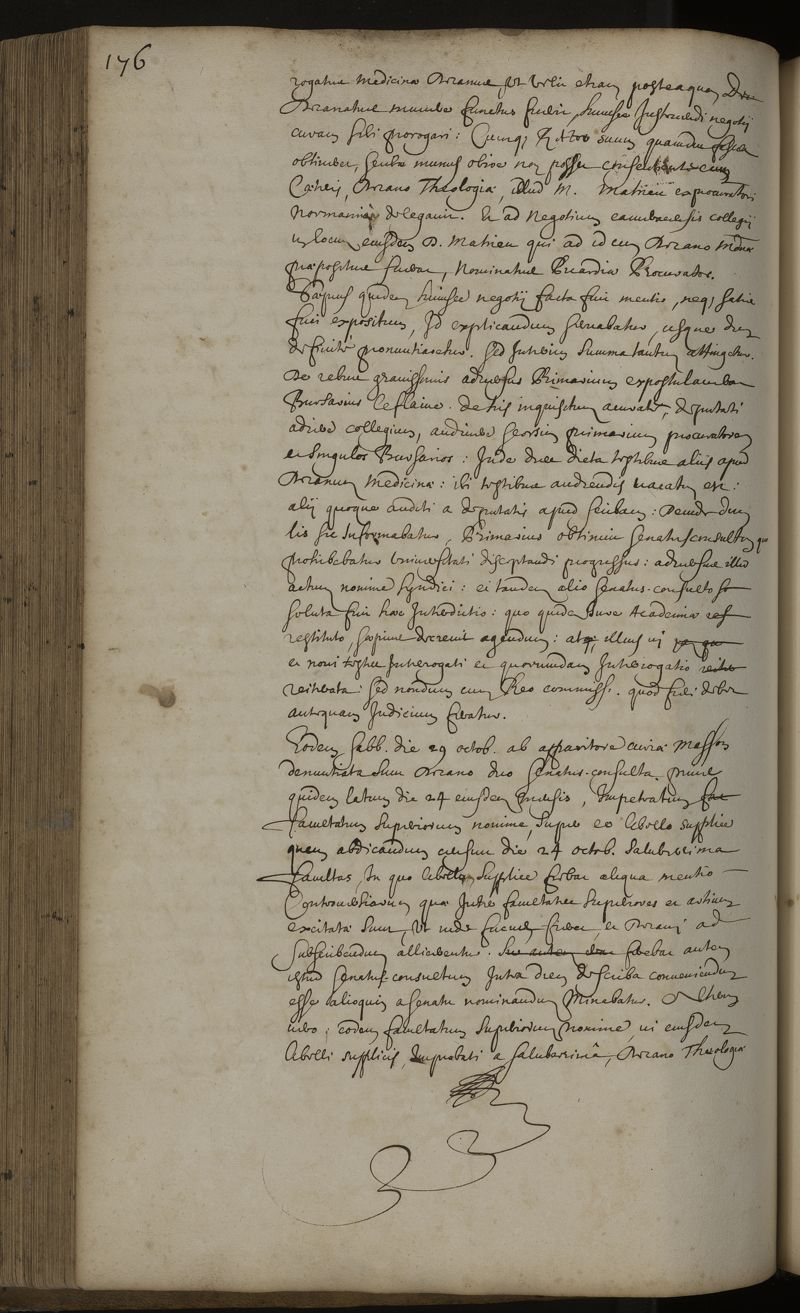 176
rogatur medicinæ Decanus, ut velit etiam posteaquam
Decanatus munere functus fuerit, huiusce Instruendi negotij
curam sibi prorogari: Cumq; Rector suum quamdiu
obtinebit, scribæ munus obire non posse
Cæteris, Decano Theologiæ, illud M. Mattieu exprocuratori
Normanniæ delegavit. Et ad negotium cameracensis collegij
in locum eiusdem D. Mattieu qui ad id cum Decano
præpositus fuerat, Nominatus Picardiæ Procurator.
Sæpius quidem huiusce negotij facta fuit mentio, neq; satis
fuit expositum, Id explicandum servabatur, usque dum
definitè pronuntiaretur. Sed Interim summa tantum attingetur.
De rebus gravissimis adversus Primarium expostulabat
Bursarius De his inquisitum deputati
adire collegium, audivere seorsim primarium procuratorem
et singulos Bursarios: Inde dies dicta testibus aliis apud
Decanum Medicinæ: ibi testibus audiendis vacatum est:
alij quoque auditi a deputatis apud scribam: Deinde dum
lis sic Informabatur, Primarius obtinuit senatusconsultum quo
prohibebatur universitati disceptandi progressus: adversus illud
actum nomine syndici: et tandem alio senatus-consulto
soluta fuit hæc Interdictio: quo quidem iure Academiæ
restituto, sæpius decrevit agendum: atq; illius vi
et novi testes Interrogati et quorumdam Interrogatio
reiterata: sed nondum cum Reo commissi. quod fieri debet
antequam Iudicium feratur.
Eodem sabb. die 29 octob. ab apparitore curiæ Masson
denuntiata sunt Decano duo senatus-consulta. primum
quidem latum die 24 eiusdem mensis, Impetratum
facultatum superiorum nomine, super eo libello supplici
quem abdicandum censuit die 24 octob. saluberrima
facultas, In quo libello supplici fiebat aliqua mentio
Controversiarum quæ Inter facultates superiores et artium
excitatæ sunt, ut inde fucus fieret, et Decani ad
subscribendum allicerentur. ferebat autem
istud senatus-consultum Intra diem de scriba conveniendum
esse alioquin a senatu nominandum minabatur. Alterum
vero, eodem facultatum superiorum nomine, vi eiusdem
libelli supplicis, Improbati a saluberrimâ, Decano Theologiæ